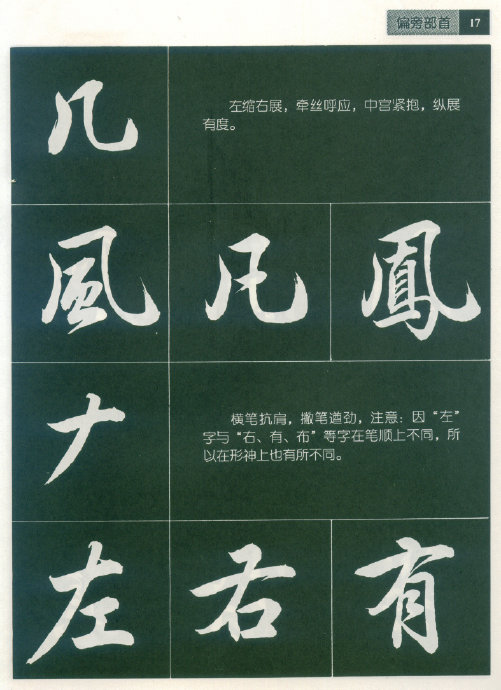 偏旁部首 17
几
左缩右展，牵丝呼应，中宫紧抱，纵展
有度。
風 凡 鳳
𠂇
横笔抗肩，撇笔遒劲，注意：因“左”
字与“右、有、布”等字在笔顺上不同，所
以在形神上也有所不同。
左 右 有